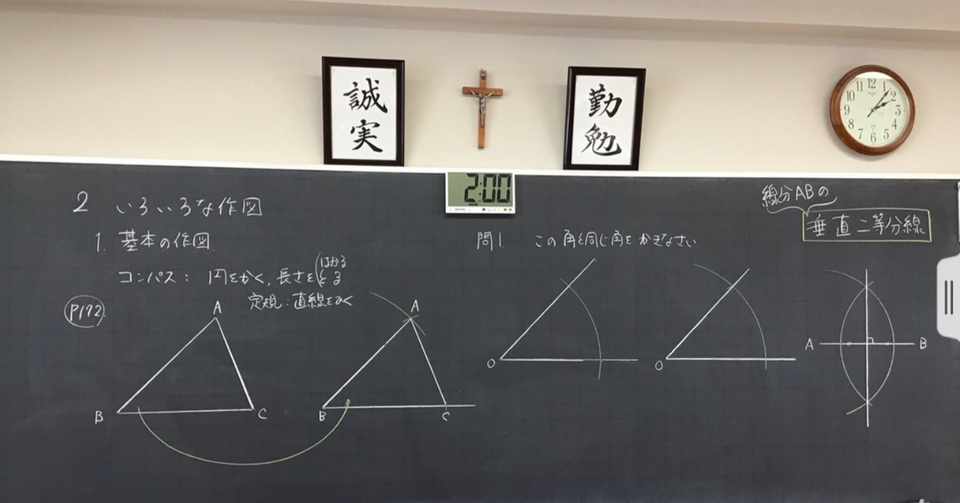 誠実
勤勉
12
1
2
3
4
5
6
7
8
9
10
11
2:00
2 いろいろな作図
1. 基本の作図
コンパス: 円をかく、長さを(はかる
とる
定規:直線をかく
P172
A
B
C
A
B
C
問1 この角と同じ角をかきなさい
O
O
線分ABの
垂直二等分線
A
B